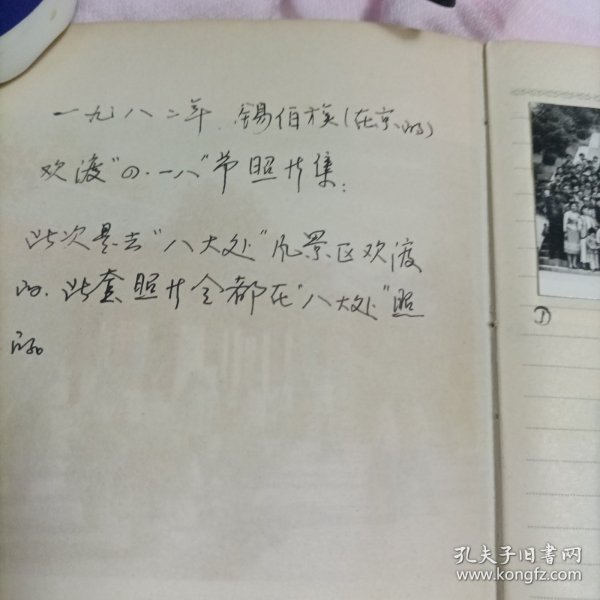 一九八二年 锡伯族(在京的)
欢渡"の.一八"节照片集:
此次是去"八大处"风景区欢渡
的.此套照片全都在"八大处"照
的。
①
孔夫子旧书网
www.kongfz.com